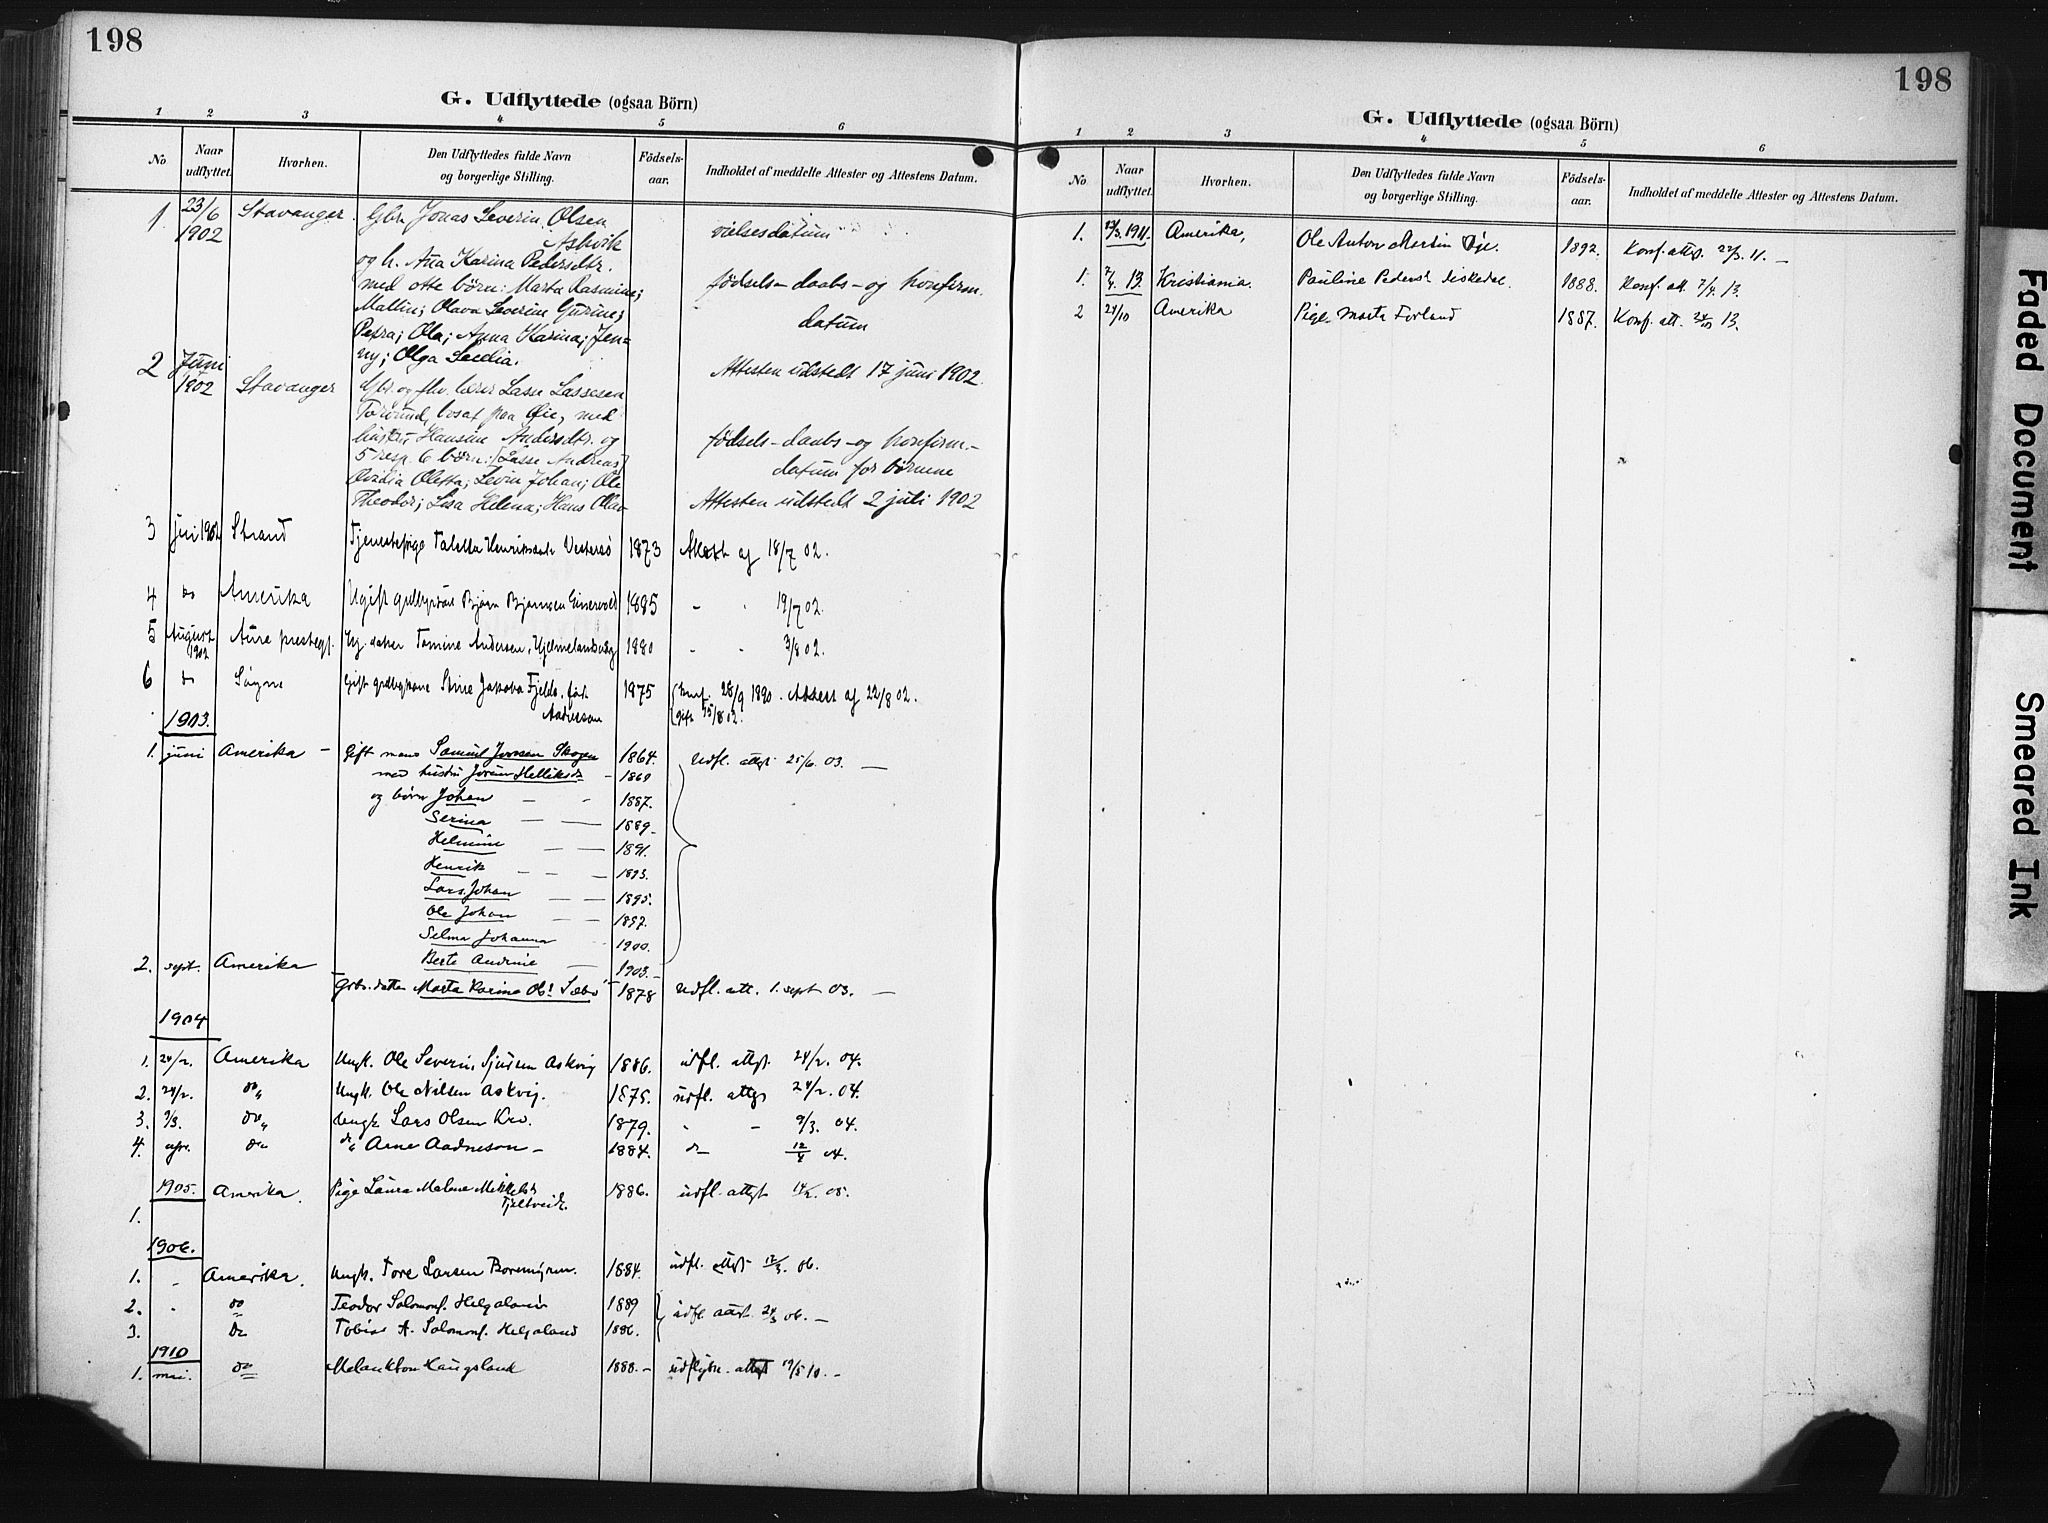 198
G. Udflyttede (ogsaa Börn)
1 2 3 4 5 6
No Naar udflyttet. Hvorhen. Den Udflyttedes fulde Navn og borgerlige Stilling. Födsels-aar. Indholdet af meddelte Attester og Attestens Datum.
1 23/6 1902 Stavanger. Gbr. Jonas Severin Olsen
Askvik vielsesdatum
og h. Ana Karina Pedersdtr.
med otte börn: Marta Rasmine; födsels- daabs- og konfirm.
Mallin; Olava Severine Gurine; datum
Petra; Ola; Anna Karina; Jen-
ny; Olga Secelia. Attesten udstedt 17 juni 1902.
2 Juni 1902 Stavanger Gbr. og fhv. lærer Lasse Lassesen
bosat paa Öie, med
hustru Hansine Andersdtr. og födsels- daabs- og konfirm.-
5 resp. 6 börn: [Lasse Andreas] datum for börnene
Oletta; Levin Johan; Ole
Theodor; Lisa Helena; Hans Olav Attesten udstedt 2 juli 1902
3 juli 1902 Strand Tjenestepige Taletta Henriksdtr. 1873 Attest af 18/7 02.
4 do Amerika Ugift Björn Björnsen 1885 - " 19/7 02.
5 August 1902 Aure prestegj. datter Tomine Andersen, Hjelmelandsvåg 1880 - " 3/8 02.
6 do Sögne Gift Stine Jakoba Fjelde, födt 1875 konf. 28/9 1890. Attest af 22/8 02.
Andersen gift 15/8 02.
1903.
1. juni Amerika - Gift mand Samuel Jonsen Skogen 1864. udfl. attst 25/6. 03. —
med hustru Jorun Helliksd. - 1869
og börn Johan - - 1887.
Serina — — 1889.
Helmine — — 1891.
Henrik - - - 1893.
Lars Johan — — 1895.
Ole Johan — — 1897.
Selma Johanna 1900.
Berte Andrine — 1903.-
2. sept. Amerika Grbr. datter Marta Karine Ols. Sæbö 1878 udfl. att. 1. sept 03. —
1904
1. 24/2. Amerika Ungk. Ole Severin Sjursen Askvig 1886. udfl. attst. 24/2. 04.
2. 24/2. do " Ungk. Ole Nilsen Askvig. 1875. udfl. attst 24/2. 04.
3. 9/3. do " Ungk. Lars Olsen Kro. 1879. - - 9/3. 04.
4. apr. do do " Arne Aadneson - 1884. do 12/4 04.
1905.
1. Amerika. Pige Laura Malene Mikkelsd. 1886. udfl. attst 14/2. 05.
Tjeltveit.
1906.
1. " Amerika. Ungk. Tore Larsen 1884. udfl. attst 12/3. 06.
2. " do Teodor Salomons. Helgaland 1889 udfl. attst. 24/3 06. —
3. do Tobias A. Salomons. Helgaland 1886.
1910
1. mai. do Melankton Haugsland 1888. - udflytn. attst 19/5 10. -
198
G. Udflyttede (ogsaa Börn)
1 2 3 4 5 6
No Naar udflyttet. Hvorhen. Den Udflyttedes fulde Navn og borgerlige Stilling. Födsels-aar. Indholdet af meddelte Attester og Attestens Datum.
1. 22/3. 1911. Amerika, Ole Anton Martin Öje. 1892. Konf. attst. 22/3. 11. —
1. 7/4. 13. Kristiania. Pauline Pedersd. Fiskedal. 1888. Konf. att. 7/4. 13.
2 24/10 Amerika Pige Marta Forland 1887. Konf. att. 24/10 13.
Faded Document
Smeared Ink